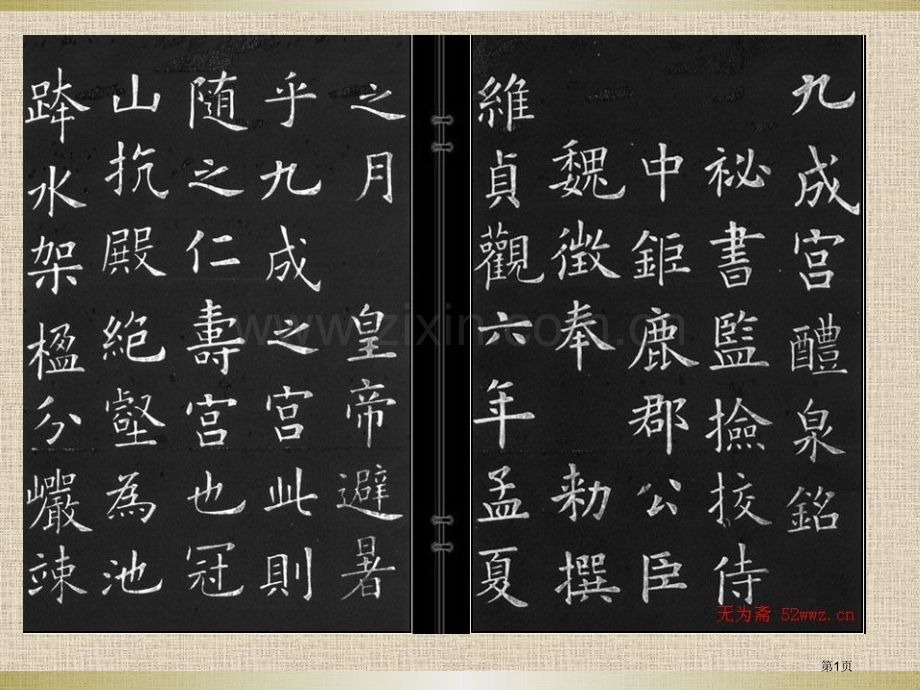 九成宮醴泉銘
祕書監撿挍侍
中鉅鹿郡公臣
魏徵奉 勑撰
維貞觀六年孟夏
之月 皇帝避暑
乎九成之宮此則
随之仁壽宮也冠
山抗殿絶壑為池
跨水架楹分巖竦
www.zixin.com.cn
无为斋 52wwz.cn
第1页